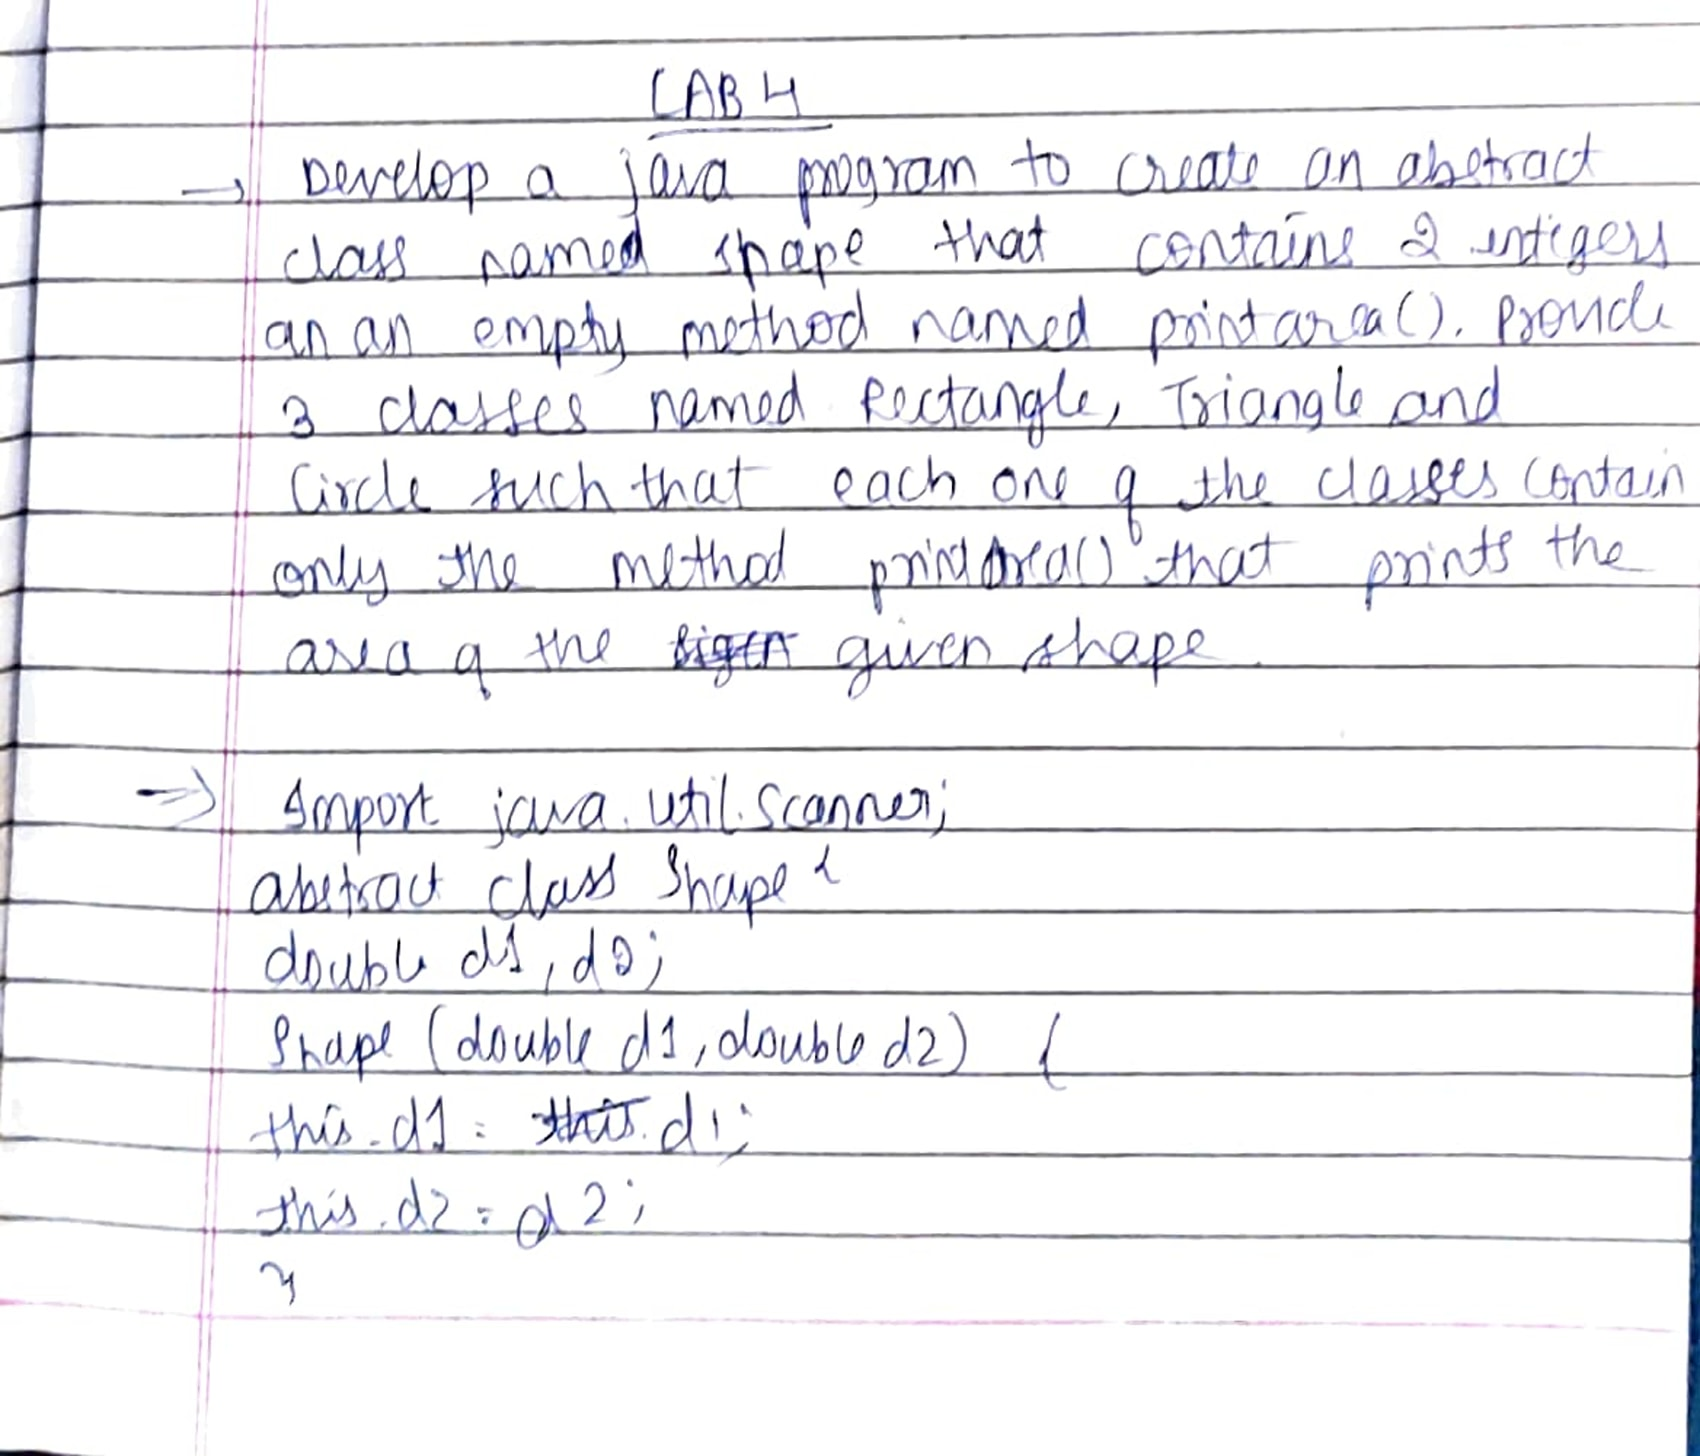 LAB 4
→ Develop a java program to create an abstract
class named shape that contains 2 intigers
an an empty method named printarea(). Provide
3 classes named Rectangle, Triangle and
Circle such that each one of the classes contain
only the method printArea() that prints the
area of the given shape.
⇒ Import java.util.Scanner;
abstract class Shape {
double d1, d2;
Shape (double d1, double d2) {
this.d1 = this. d1;
this.d2 = d2;
}